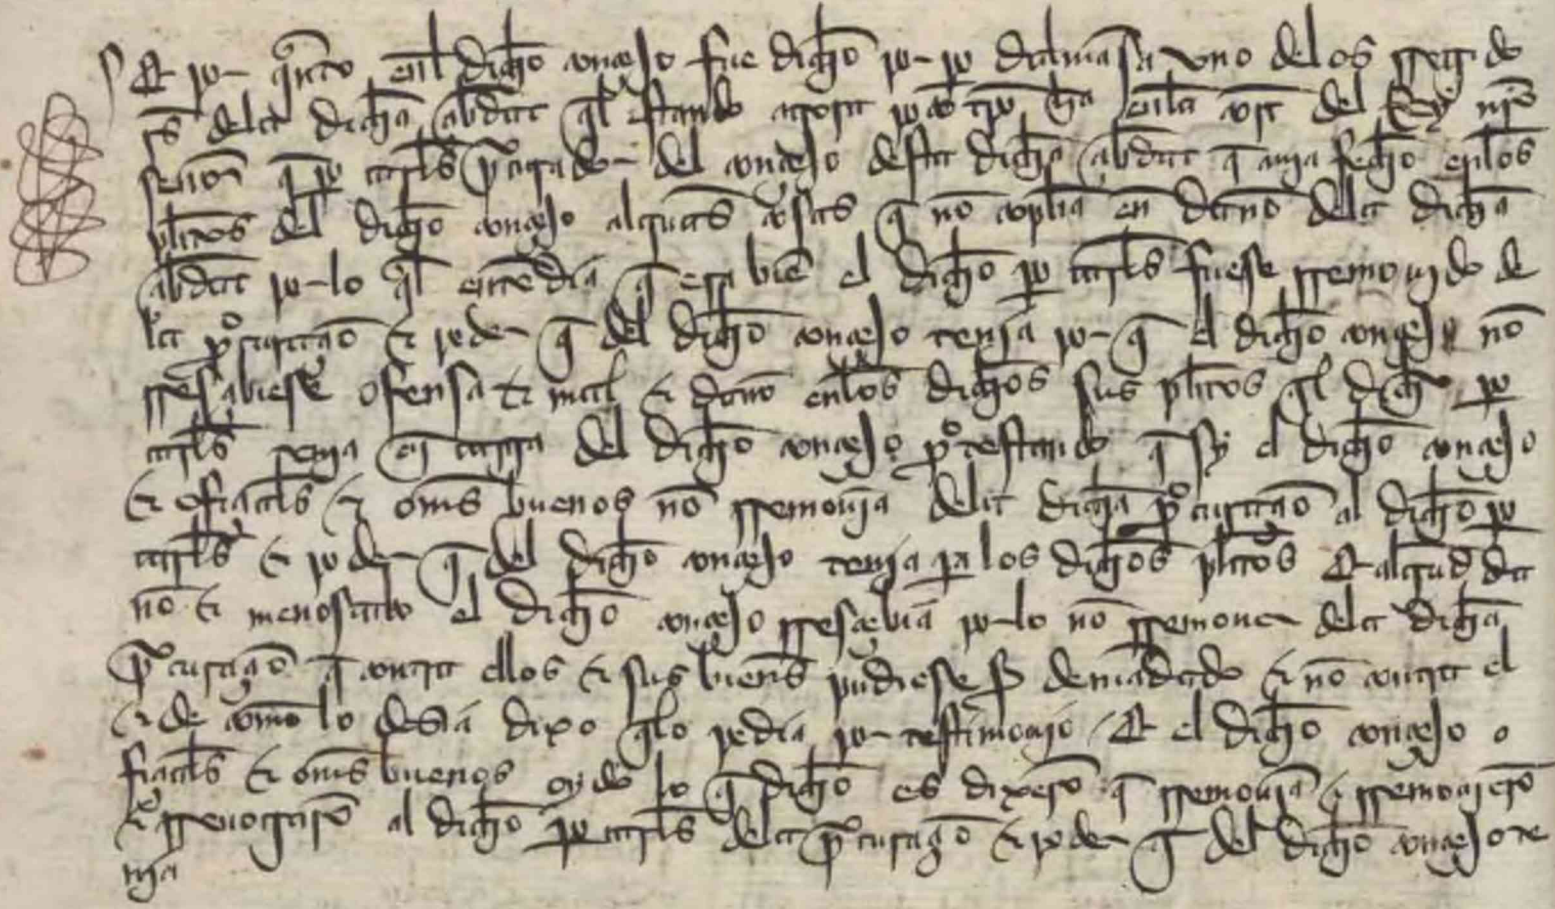 Et por quãto enl dicho conçejo fue dicho por po dalmasa uno delos rregido
rs dela dicha çibdat q̃l estando agora poco tpo ha enla corte del Rey nr̃o
señor q̃ po procurador del conçejo desta dicha çibdat q̃ auja fecho enlos
pleitos del dicho conçejo algunas cosas q̃ nõ conplia en daño dela dicha
çibdat por lo q̃l entẽdia q̃ era biẽ el dicho po fuese rremouido de
la procuraçiõ & poder q̃ del dicho conçejo tenja por q̃ el dicho conçejo nõ
rresçibiese ofensa & mal & daño enlos dichos sus pleitos q̃l dicho po
tenja en carga del dicho conçejo protestando q̃ sy el dicho conçejo
& ofiçiales & oms buenos nõ rremouja dela dicha procuraçiõ al dicho po
& poder q̃ del dicho conçejo tenja pa los dichos pleitos Et algud da
ño & menoscabo el dicho conçejo rresçebia por lo nõ rremouer dela dicha
procuraçõ q̃ contra ellos & sus bienes pudiese sr demãdado & nõ contra el
& de como lo desia dixo q̃lo pedia por testimonjo Et el dicho conçejo o
fiçiales & oms buenos oydo lo q̃ dicho es dixerõ q̃ rremouiã & rremoujerõ
& rreuocarõ al dicho po dela procuraçõ & poder q̃ del dicho conçejo te
nja